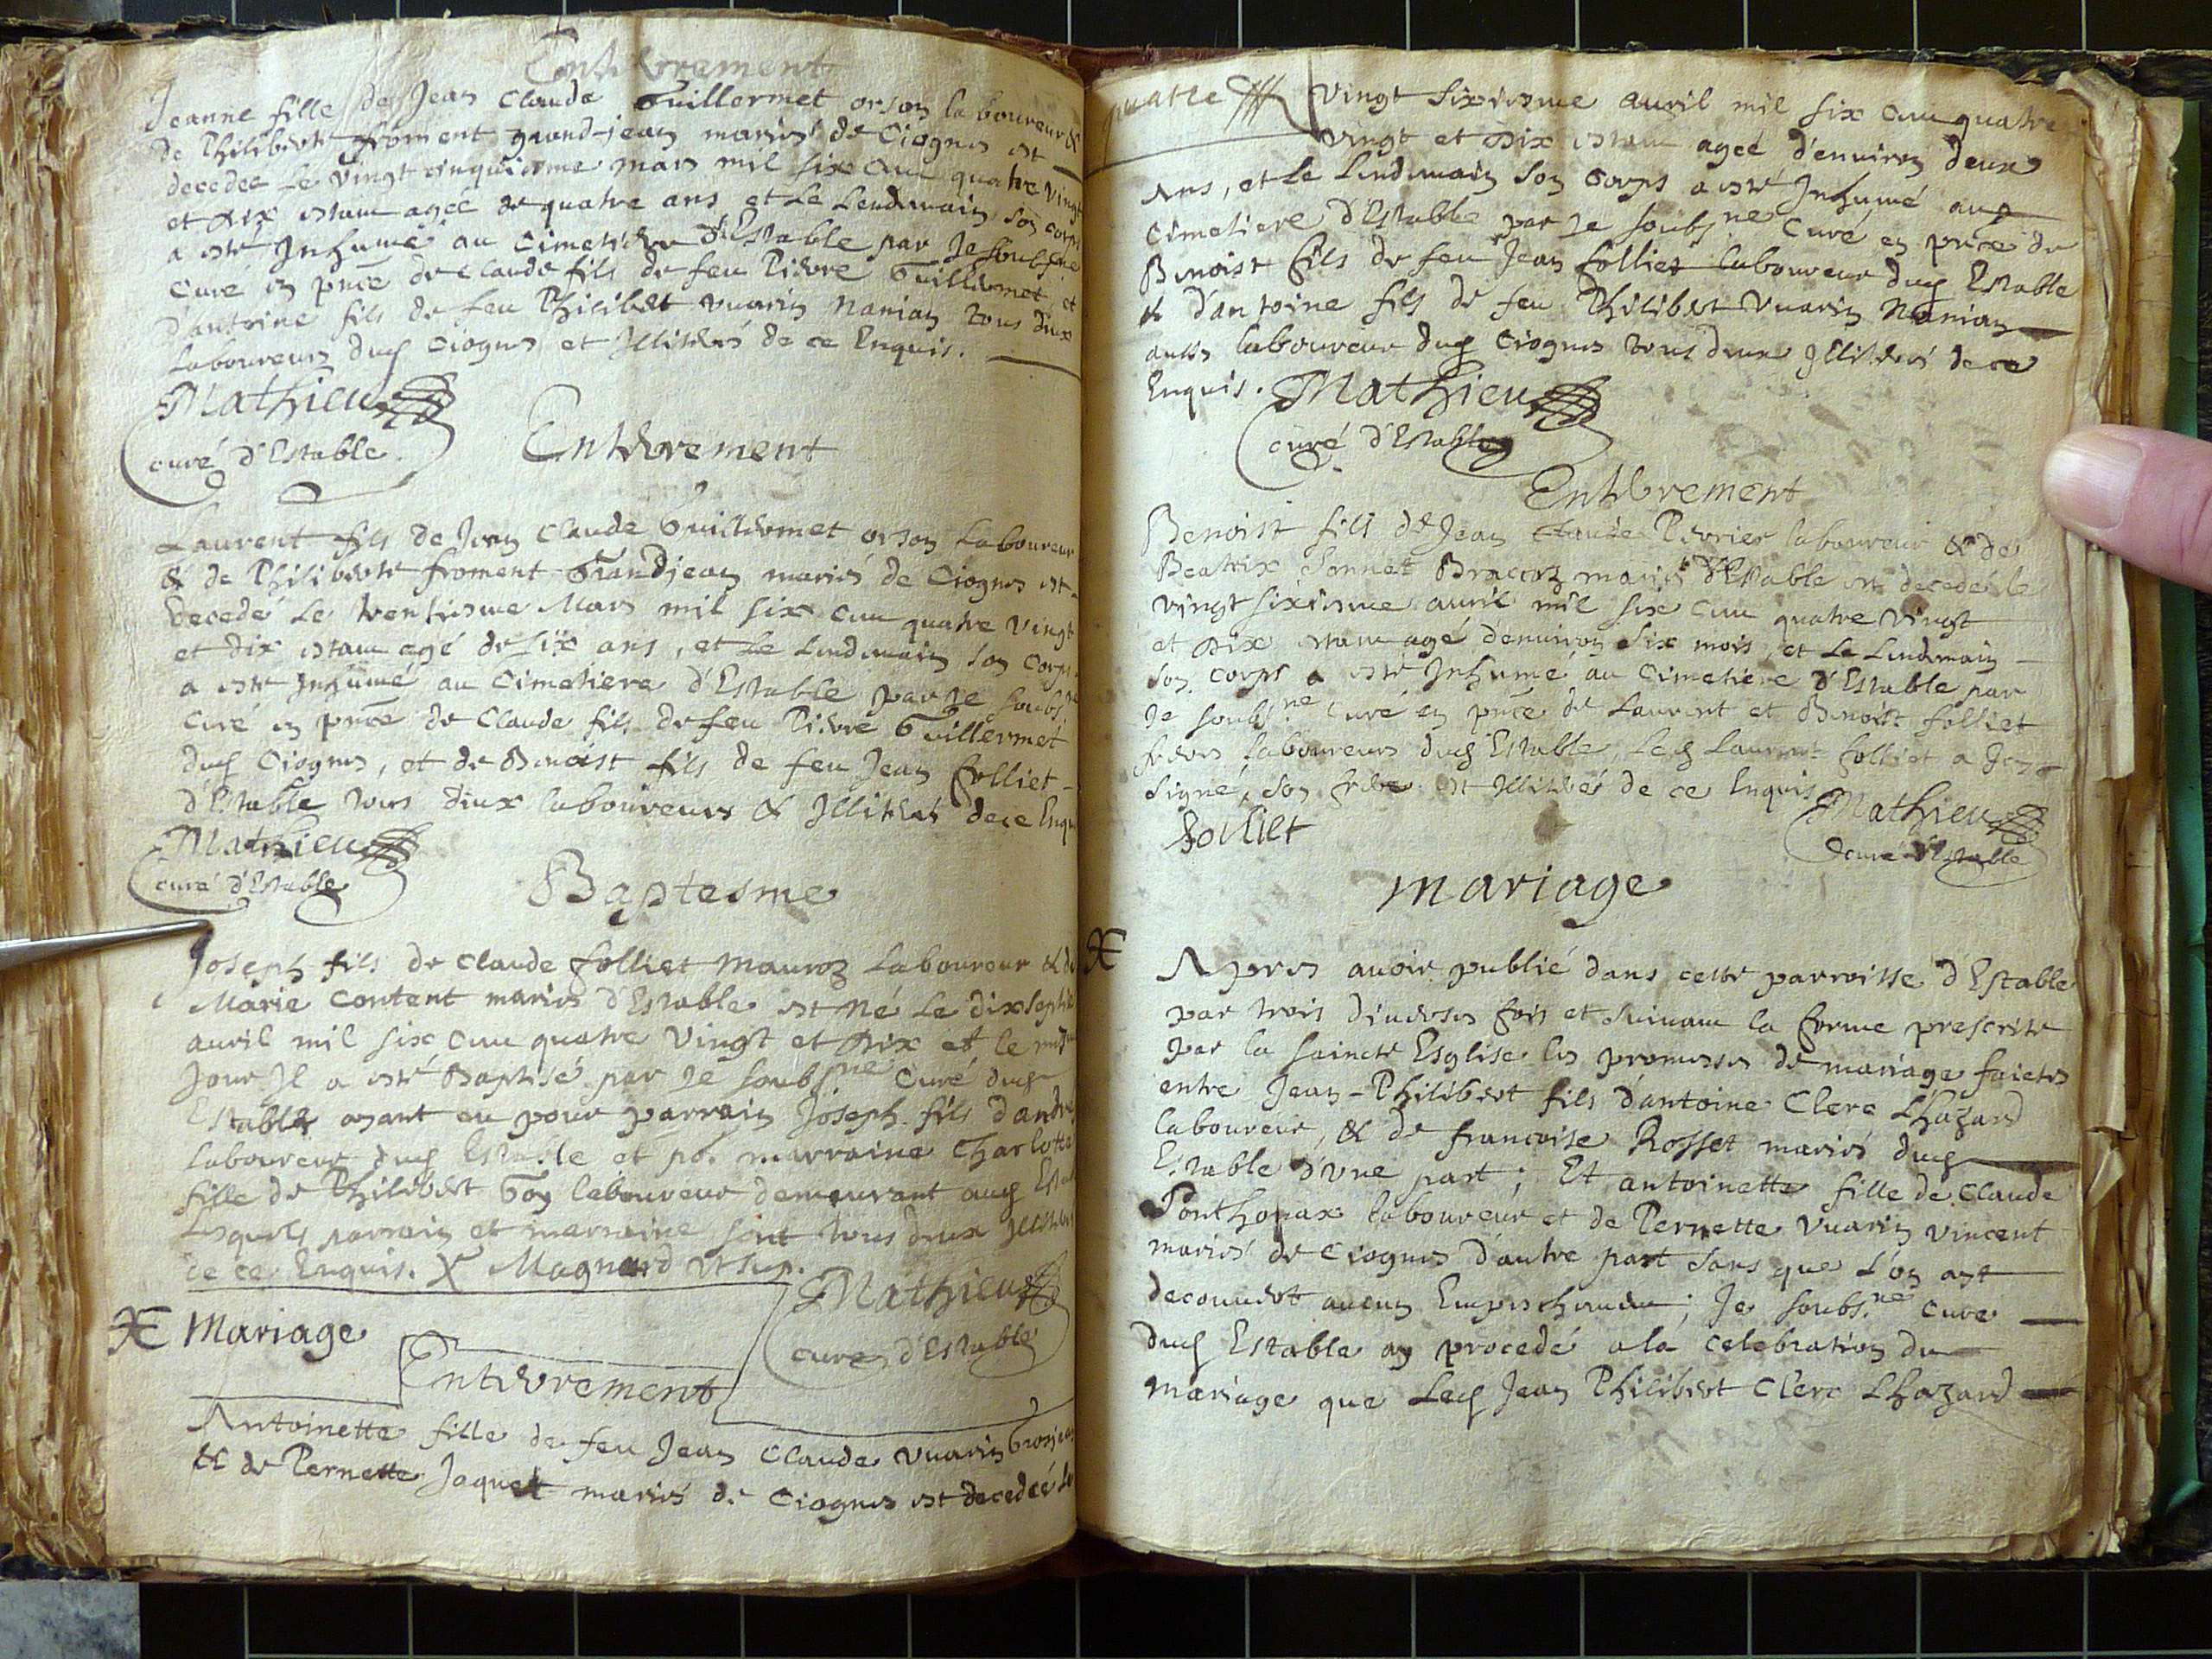 Enterrement
Jeanne fille de Jean Claude Guillermet orson laboureur &
de Philiberte froment grand-jean mariés de Ciognes est
decedee Le vingt cinquieme mars mil six cent quatre vingt
et dix estant agée de quatre ans et Le Lendemain son corps
a esté Inhumé au Cimetiere d'Estable par Je soubsné
Curé en pnce de Claude fils de feu Pierre Guillermet et
d'antoine fils de feu Philibert Vuarin Nanian tous deux
Laboureurs dud Ciognes et Illiterés de ce Enquis.
Mathieu
curé d'Estable.
Enterrement
Laurent fils de Jean Claude Guillermet orson Laboureur
& de Philiberte froment Grandjean mariés de Ciognes est
Decedé Le trentiesme Mars mil six cent quatre vingt
et dix estant agé de six ans, et Le Lendemain son corps
a esté Inhumé au Cimetiere d'Estable par Je soubsné
Curé en pnce de Claude fils de feu Pierre Guillermet
dud Ciognes, et de Benoist fils de feu Jean folliet
d'Estable tous deux laboureurs & Illiterés de ce Enqu
Mathieu
curé d'Estable
Baptesme
Joseph fils de Claude folliet Mauroz Laboureur & de
Marie Content mariés d'Estable est Né Le dixsepti
auril mil six cent quatre Vingt et Dix et le mesme
Jour Il a esté Baptisé par Je soubsné Curé dud
Estable ayant eu pour parrain Joseph fils d'andre
Laboureur dud Estable et po. marraine Charlotte
fille de Philibert Goy laboureur demeurant aud Est
Lesquels parrain et marraine sont tous deux Illiter
de ce Enquis. X Magnard Vt sup.
Mathieu
curé d'Estable
Mariage
Enterrement
Antoinette fille de feu Jean Claude Vuarin Grosjean
& de Pernette Jaquet mariés de Ciognes est decedée Le
quatre Vingt sixiesme auril mil six cent quatre
vingt et Dix estant agée d'enuiron deux
Ans, et Le Lendemain son Corps a esté Inhumé aud
Cimetiere d'Estable par Je soubsné Curé en pnce de
Benoist fils de feu Jean folliet laboureur dud Estable
& d'antoine fils de feu Philibert Vuarin Nanian
aussy laboureur dud Ciognes tous deux Illiterés de ce
Enquis. Mathieu
curé d'Estable
Enterrement
Benoist fils de Jean Claude Perrier laboureur & de
Beatrix Sonnet Bracoz mariés d'Estable est decedé le
vingt sixiesme auril mil six cent quatre Vingt
et Dix estant agé d'enuiron six mois, et Le Lendemain
son corps a esté Inhumé au Cimetiere d'Estable par
Je soubsné Curé en pnce de Laurent et Benoist folliet
freres laboureurs dud Estable, Led Laurent folliet a Icy
Signé, son frere est Illiteré de ce Enquis
Mathieu
folliet
curé d'Estable
Mariage
Apres auoir publié dans cette parroisse d'Estable
par trois diuerses fois et suiuant la forme prescrite
par la saincte Esglise les promesses de mariage faictes
entre Jean-Philibert fils d'antoine Clerc Lhazard
laboureur, & de francoise Rosset mariés dud
Estable d'vne part; Et antoinette fille de Claude
Ponthonax laboureur et de Pernette Vuarin Vincent
mariés de Ciognes d'autre part sans que L'on ayt
decouuert aucun Empeschement; Je soubsné Curé
dud Estable ay procedé a la celebration du
mariage que Led Jean Philibert Clerc Lhazard